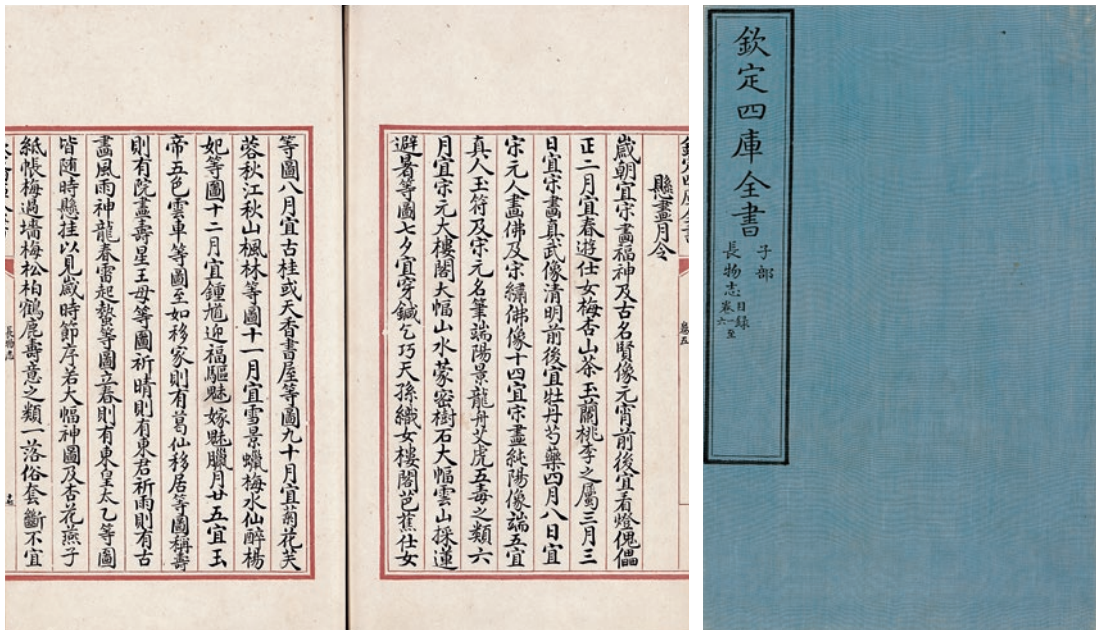 欽定四庫全書
子部
長物志
目錄
卷一至六
懸畫月令
歲朝宜宋畫福神及古名賢像元宵前後宜看燈傀儡
正二月宜春遊仕女梅杏山茶玉蘭桃李之屬三月三
日宜宋畫真武像清明前後宜牡丹芍藥四月八日宜
宋元人畫佛及宋繡佛像十四宜宋畫純陽像端五宜
真人玉符及宋元名筆端陽景龍舟艾虎五毒之類六
月宜宋元大樓閣大幅山水蒙密樹石大幅雲山採蓮
避暑等圖七夕宜穿鍼乞巧天孫織女樓閣芭蕉仕女
等圖八月宜古桂或天香書屋等圖九十月宜菊花芙
蓉秋江秋山楓林等圖十一月宜雪景蠟梅水仙醉楊
妃等圖十二月宜鍾馗迎福驅魅嫁魅臘月廿五宜玉
帝五色雲車等圖至如移家則有葛仙移居等圖稱壽
則有院畫壽星王母等圖祈晴則有東君祈雨則有古
畫風雨神龍春雷起蟄等圖立春則有東皇太乙等圖
皆隨時懸挂以見歲時節序若大幅神圖及杏花燕子
紙帳梅過墻梅松柏鶴鹿壽意之類一落俗套斷不宜
長物志